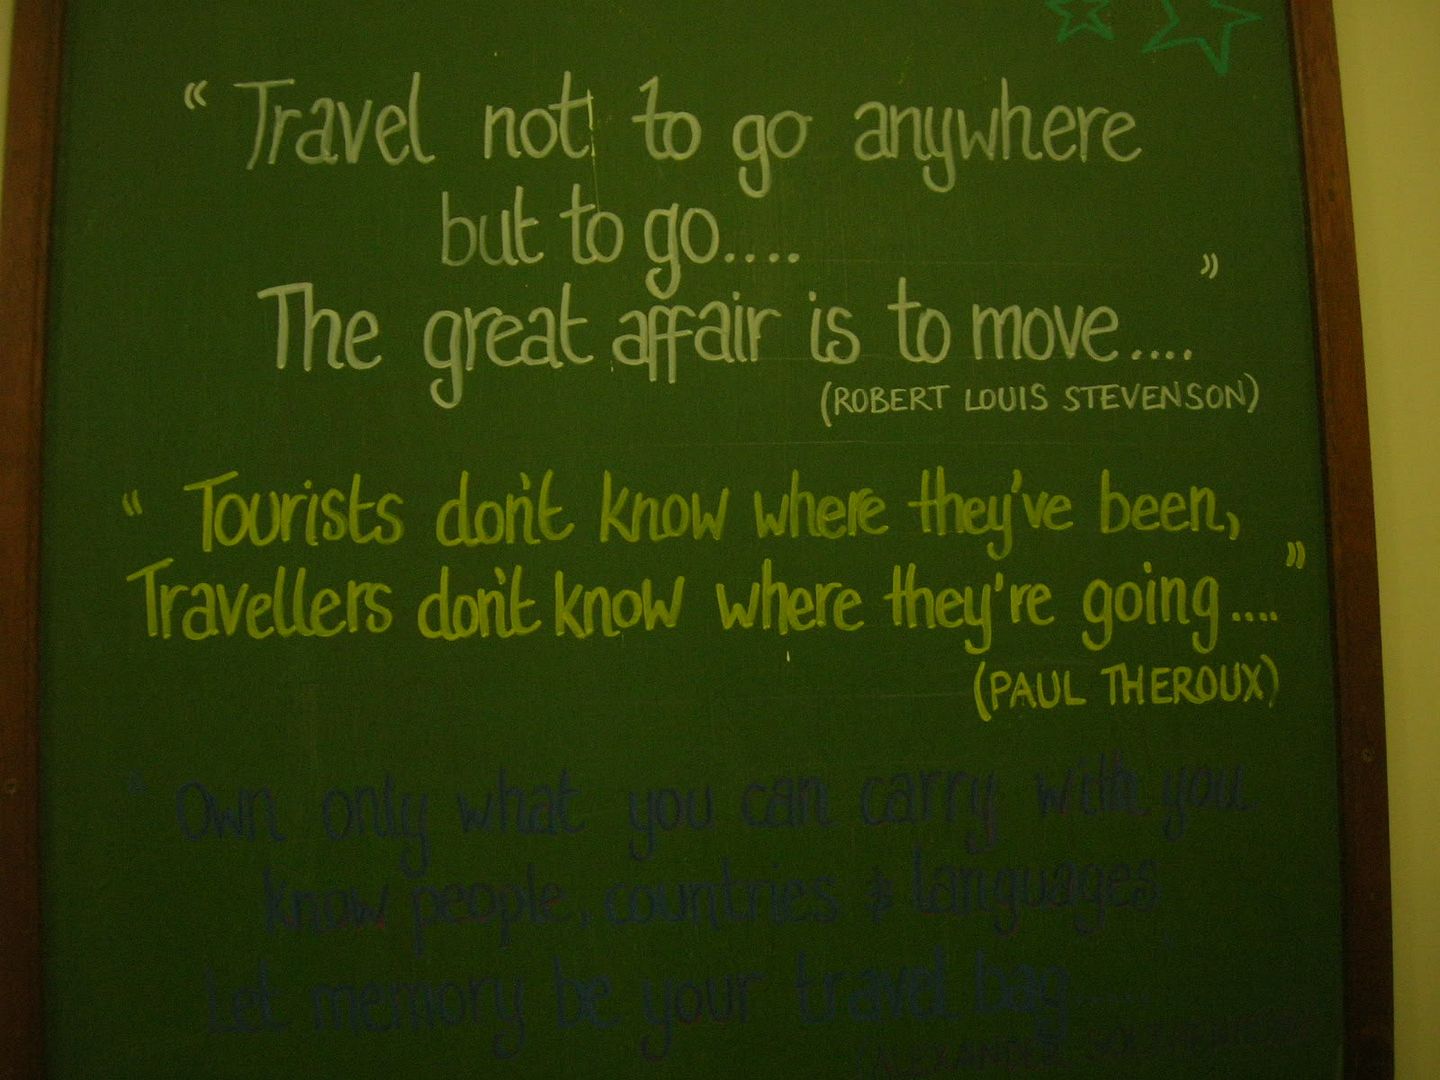 “ Travel not to go anywhere
but to go....
The great affair is to move.... ”
(ROBERT LOUIS STEVENSON)
“ Tourists don't know where they've been,
Travellers don't know where they're going.... ”
(PAUL THEROUX)
“ Own only what you can carry with you
know people, countries & languages
Let memory be your travel bag......
(ALEXANDER